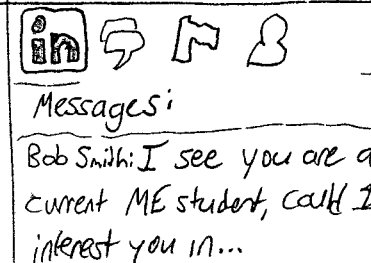 in
Messages:
Bob Smith: I see you are a
current ME student, could I
interest you in...